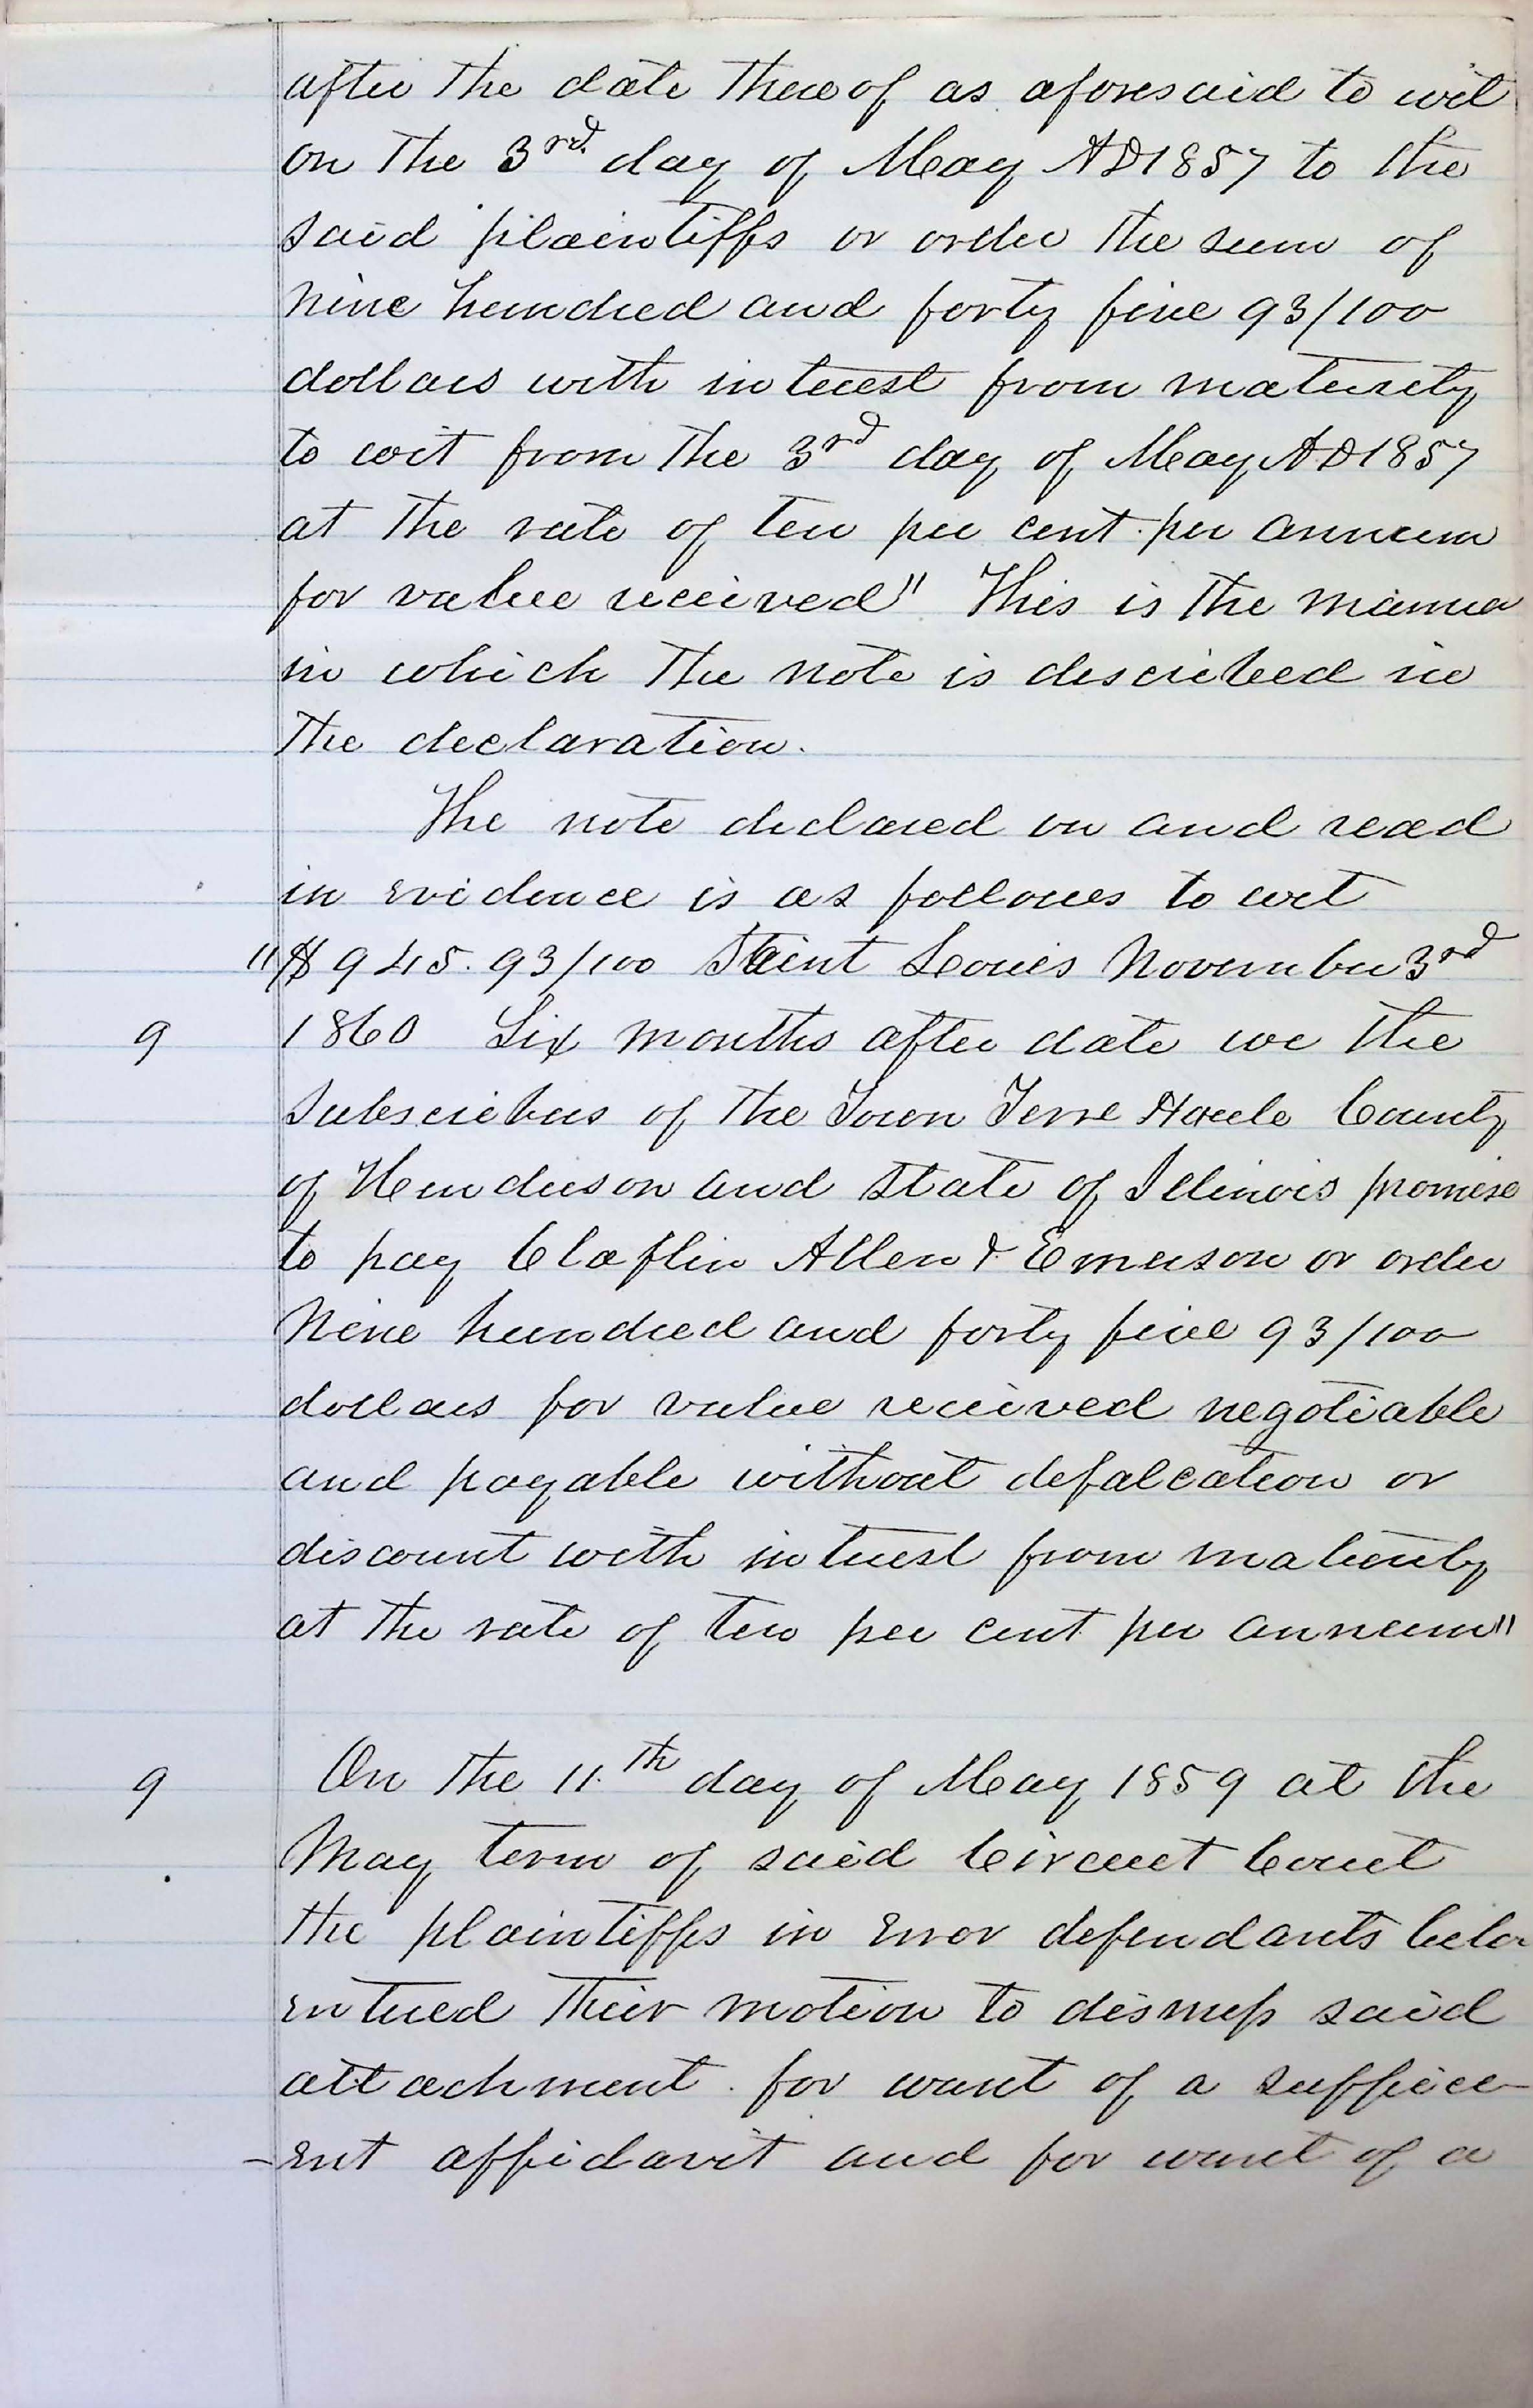 after the date thereof as aforesaid to wit
on the 3rd. day of May AD 1857 to the
said plaintiffs or order the sum of
nine hundred and forty five 93/100
dollars with interest from maturity
to wit from the 3rd day of May A.D 1857
at the rate of ten per cent. per annum
for value received" This is the manner
in which the note is described in
the declaration.
The note declared on and read
in evidence is as follows to wit
"$945.93/100 Saint Louis November 3rd
9 1860 Six months after date we the
subscribers of the Town Terre Haute County
of Henderson and State of Illinois promise
to pay Claflin Allen & Emerson or order
Nine hundred and forty five 93/100
dollars for value received negotiable
and payable without defalcation or
discount with interest from maturity
at the rate of ten per cent. per annum"
9 On the 11.th day of May 1859 at the
May term of said Circuit Court
the plaintiffs in error defendants below
entered their motion to dismiss said
attachment. for want of a suffici-
-ent affidavit and for want of a